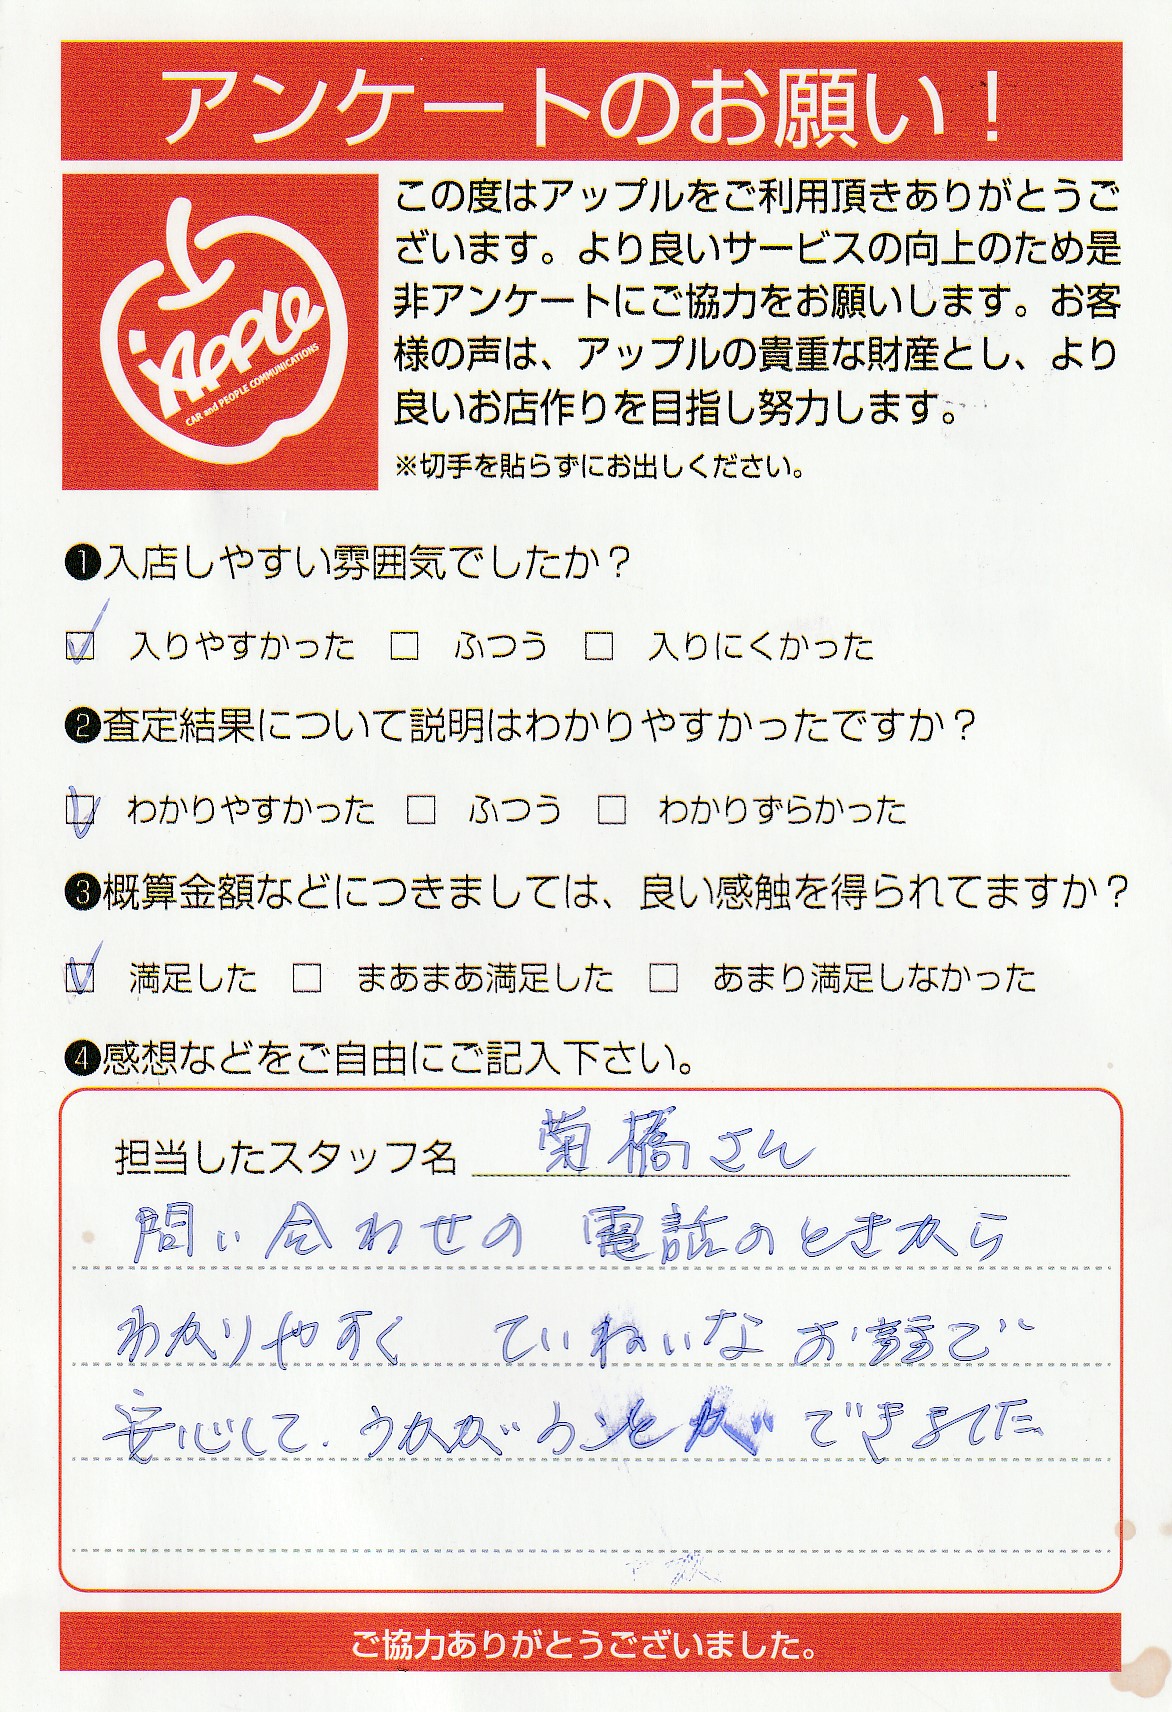 アンケートのお願い！
Apple
CAR and PEOPLE COMMUNICATIONS
この度はアップルをご利用頂きありがとうご
ざいます。より良いサービスの向上のため是
非アンケートにご協力をお願いします。お客
様の声は、アップルの貴重な財産とし、より
良いお店作りを目指し努力します。
※切手を貼らずにお出しください。
❶入店しやすい雰囲気でしたか？
☑ 入りやすかった □ ふつう □ 入りにくかった
❷査定結果について説明はわかりやすかったですか？
☑ わかりやすかった □ ふつう □ わかりずらかった
❸概算金額などにつきましては、良い感触を得られてますか？
☑ 満足した □ まあまあ満足した □ あまり満足しなかった
❹感想などをご自由にご記入下さい。
担当したスタッフ名 菊橋さん
問い合わせの 電話のときから
わかりやすく ていねいな お話で
安心して、うかがうことが できました
ご協力ありがとうございました。